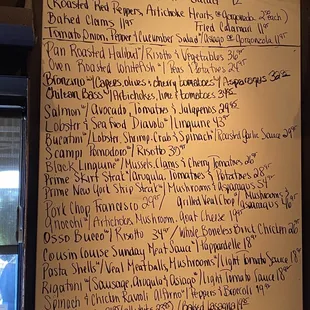 (Roasted Red Peppers, Artichoke Hearts or Gorgonzola 2⁹⁵ each)
Baked Clams 11⁹⁵ Fried Calamari 11⁹⁵
Tomato Onion, Pepper & Cucumber Salad w/ Asiago or Gorgonzola 11⁹⁵
Pan Roasted Halibut / Risotto & Vegetables 36⁹⁵
Oven Roasted Whitefish / Peas & Potatoes 24⁹⁵
Bronzino "Capers, olives & cherry tomatoes" / Asparagus
Chilean Bass "Artichokes, lime & tomatoes
Salmon "Avocado, Tomatoes & Jalapenos 29⁹⁵
Lobster & Sea Food Diavolo" / Linguine 43⁹⁵
Bucatini "Lobster, Shrimp, Crab & Spinach" / Roasted Garlic Sauce 29⁹⁵
Scampi Pomodoro" / Risotto
Black Linguine "Mussels, Clams & Cherry Tomatoes 26⁹⁵
Prime Skirt Steak "Arugula, Tomatoes & Potatoes 28⁹⁵
Prime New York Strip Steak "Mushrooms & Asparagus 54⁹⁵
Pork Chop Francesco 29⁹⁵ / Grilled Veal Chop" / Mushrooms & Asparagus
Gnocchi "Artichoke, Mushroom, Goat Cheese 19⁹⁵
Osso Bucco "/ Risotto 34⁹⁵ / Whole Boneless Brick Chicken 26⁹⁵
Cousin Louise Sunday Meat Sauce" / Pappardelle 18⁹⁵
Pasta Shells "Veal Meatballs, Mushrooms" / Light Tomato Sauce 18⁹⁵
Rigatoni "Sausage, Arugula & Asiago" / Light Tomato Sauce 18⁹⁵
Spinach & Chicken Ravioli Alfredo "Peppers & Broccoli 19⁹⁵
Baked Lasagna